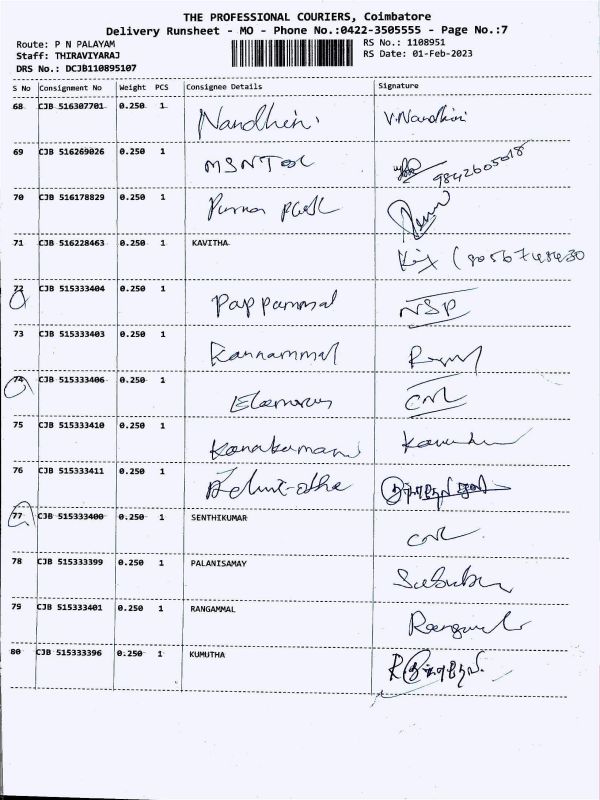 THE PROFESSIONAL COURIERS, Coimbatore
Delivery Runsheet - MO - Phone No.:0422-3505555 - Page No.:7
Route: P N PALAYAM
RS No.: 1108951
Staff: THIRAVIYARAJ
RS Date: 01-Feb-2023
DRS No.: DCJB110895107
S No Consignment No Weight PCS Consignee Details Signature
68 CJB 516307701 0.250 1 Nandhini V.Nandhini
69 CJB 516269026 0.250 1 9842605018
70 CJB 516178829 0.250 1
71 CJB 516228463 0.250 1 KAVITHA
72 CJB 515333404 0.250 1 Pappammal NSP
73 CJB 515333403 0.250 1 Kannammal
74 CJB 515333406 0.250 1 CNL
75 CJB 515333410 0.250 1 Kanakamani
76 CJB 515333411 0.250 1
77 CJB 515333400 0.250 1 SENTHIKUMAR CNL
78 CJB 515333399 0.250 1 PALANISAMAY
79 CJB 515333401 0.250 1 RANGAMMAL
80 CJB 515333396 0.250 1 KUMUTHA